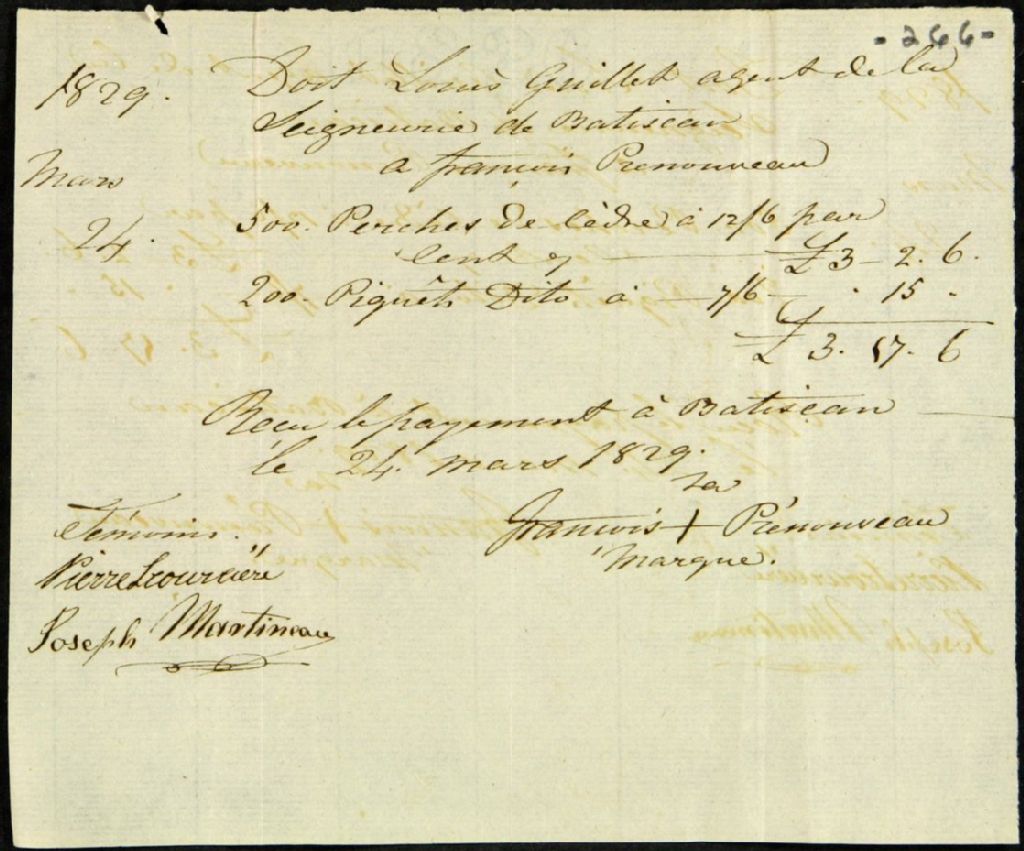 - 266 -
1829. Doit Louis Guillet agent de la
Seigneurie de Batiscan
a francois Prenouveau
Mars
24. 500. Perches de Cèdre à 12/6 par
Cent £3 - 2. 6.
200. Piquêts Dito à 7/6 . 15 .
£ 3. 17. 6
Recu le payement à Batiscan
le 24 mars 1829.
sa
francois + Prénouveau
marque.
Témoins.
Pierre
Joseph Martineau